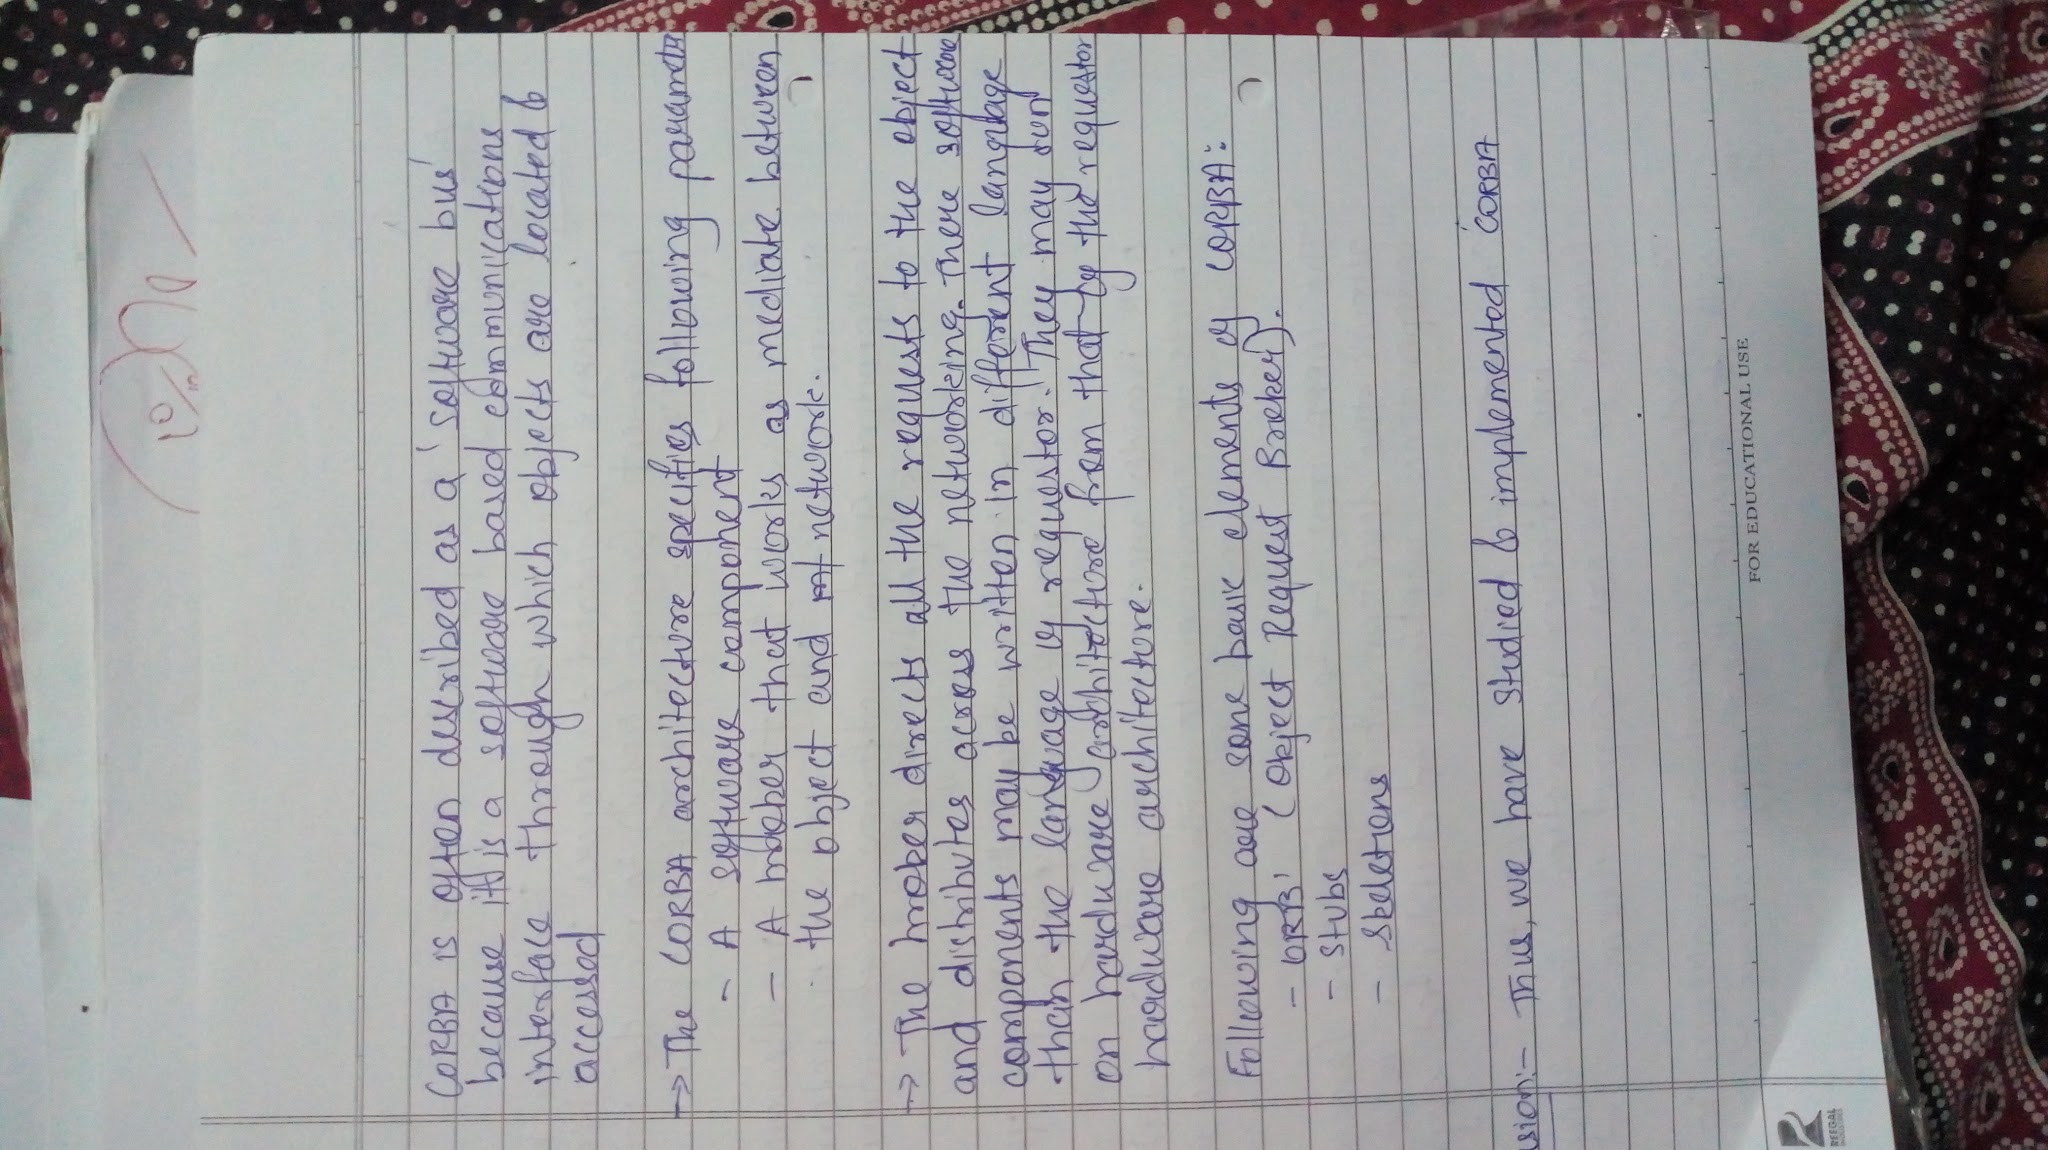 CORBA is often described as a 'software bus'
because it is a software based communications
interface through which objects are located &
accessed
→ The CORBA architecture specifies following parameter
- A software component
- A broker that works as mediate between
the object and network.
→ The broker directs all the requests to the object
and distributes across the networking. There software
components may be written in different language
than the language of requestor. They may run
on hardware architecture from that of the requestor
hardware architecture.
Following are some basic elements of CORBA:
- ORB, (Object Request Broker).
- Stubs
- Skeletons
usion:- Thus, we have studied & implemented CORBA
REEGAL
FOR EDUCATIONAL USE